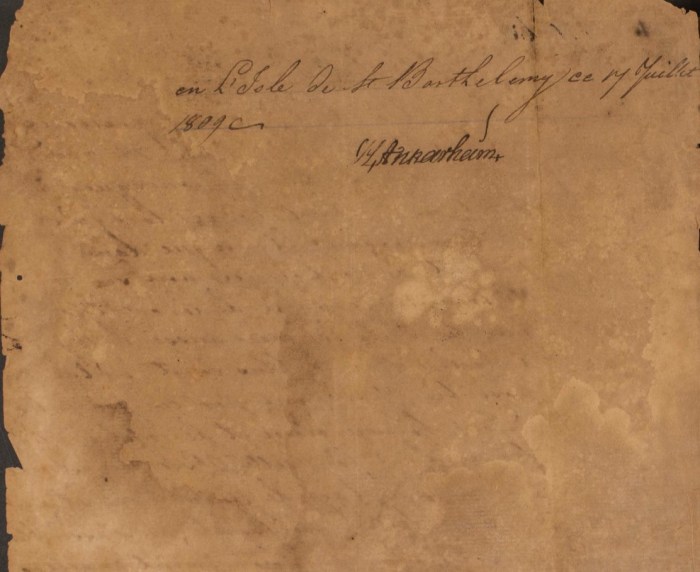 en L'Isle de St Barthelemy, ce 17 Juillet
1809
H. Ankarheim